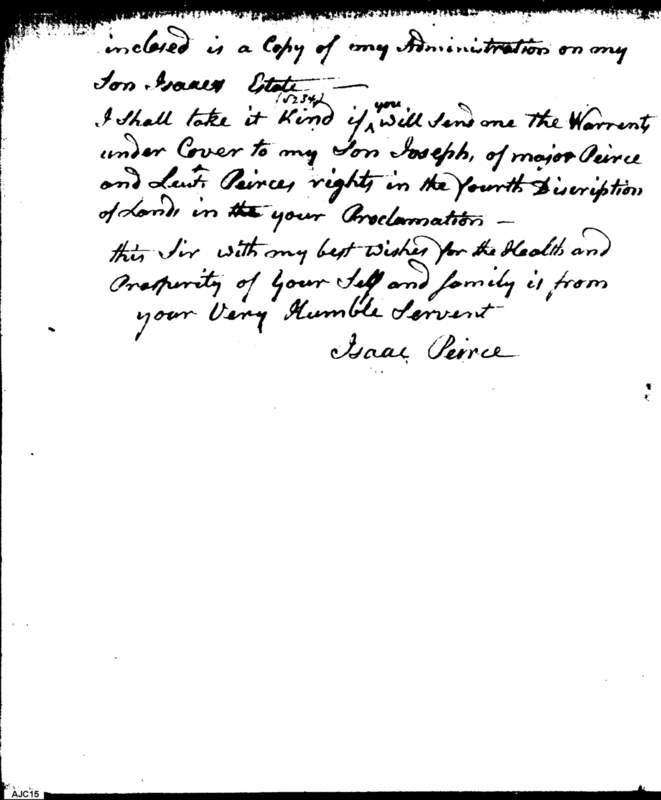 inclosed is a Copy of my Administration on my
Son Isaacs Estate —
(5234)
I Shall take it Kind if you will Send me the Warrents
under Cover to my Son Joseph, of major Peirce
and Leut Peirces rights in the fourth Discription
of Lands in the your Proclamation —
this Sir with my best Wishes for the Health and
Prosperity of your Self and family is from
your Very Humble Servent
Isaac Peirce
AJC15